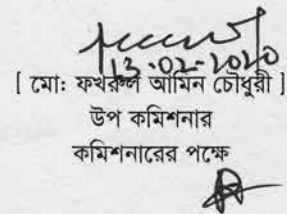 13-02-2020
[ মোঃ ফখরুল আমিন চৌধুরী ]
উপ কমিশনার
কমিশনারের পক্ষে